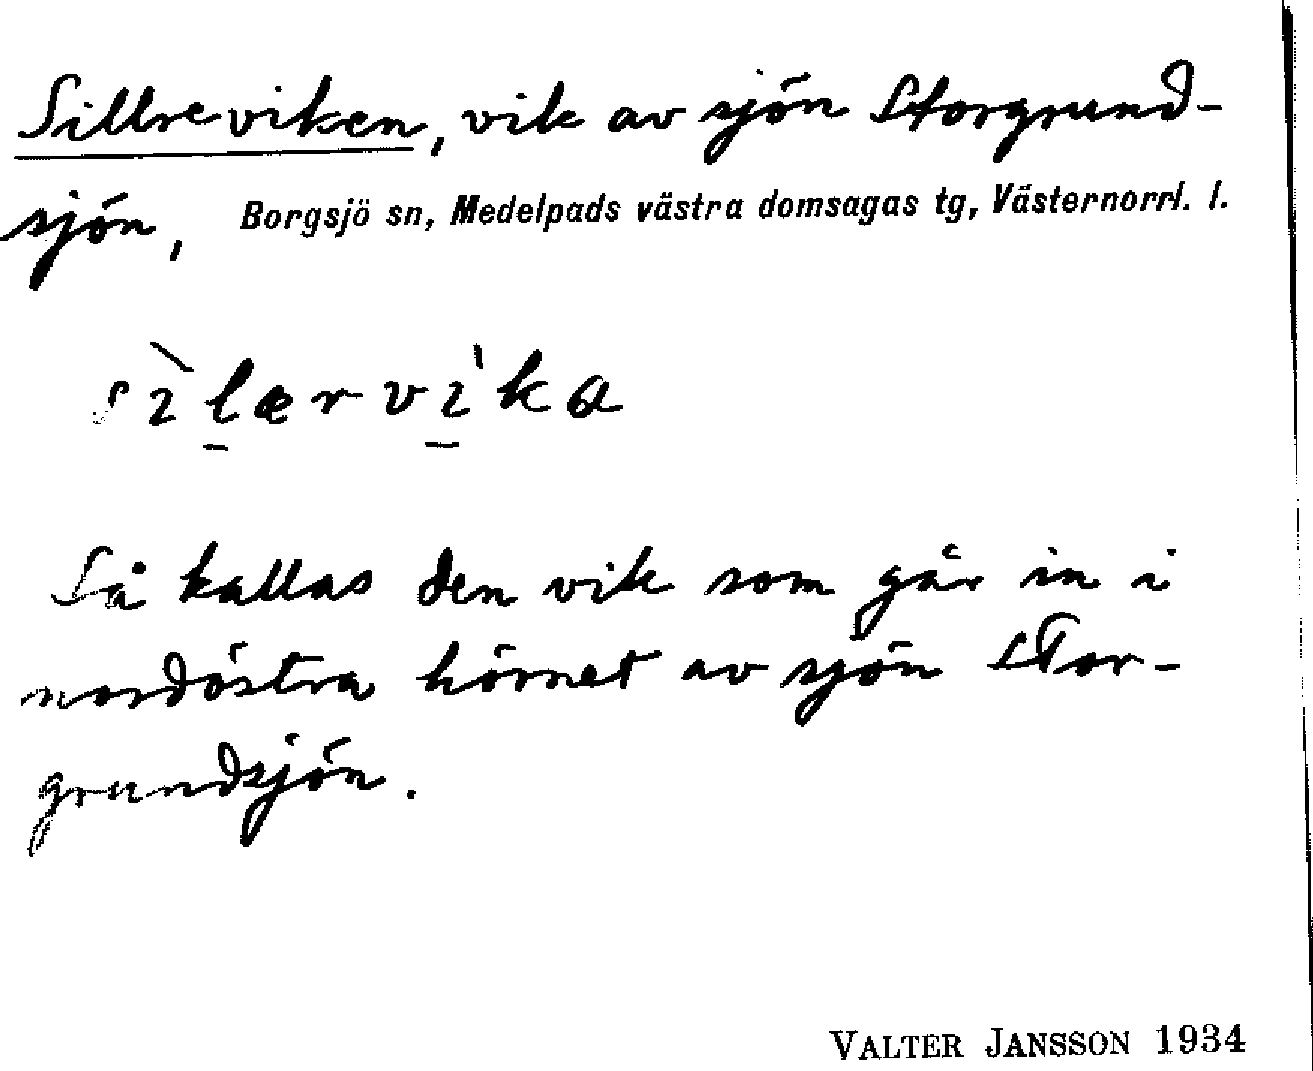 Sillreviken, vik av sjön Storgrund-
sjön, Borgsjö sn, Medelpads västra domsagas tg, Västernorrl. l.
sìl̠ærvi̠̍ka
Så kallas den vik som går in i
nordöstra hörnet av sjön Stor-
grundsjön.
VALTER JANSSON 1934